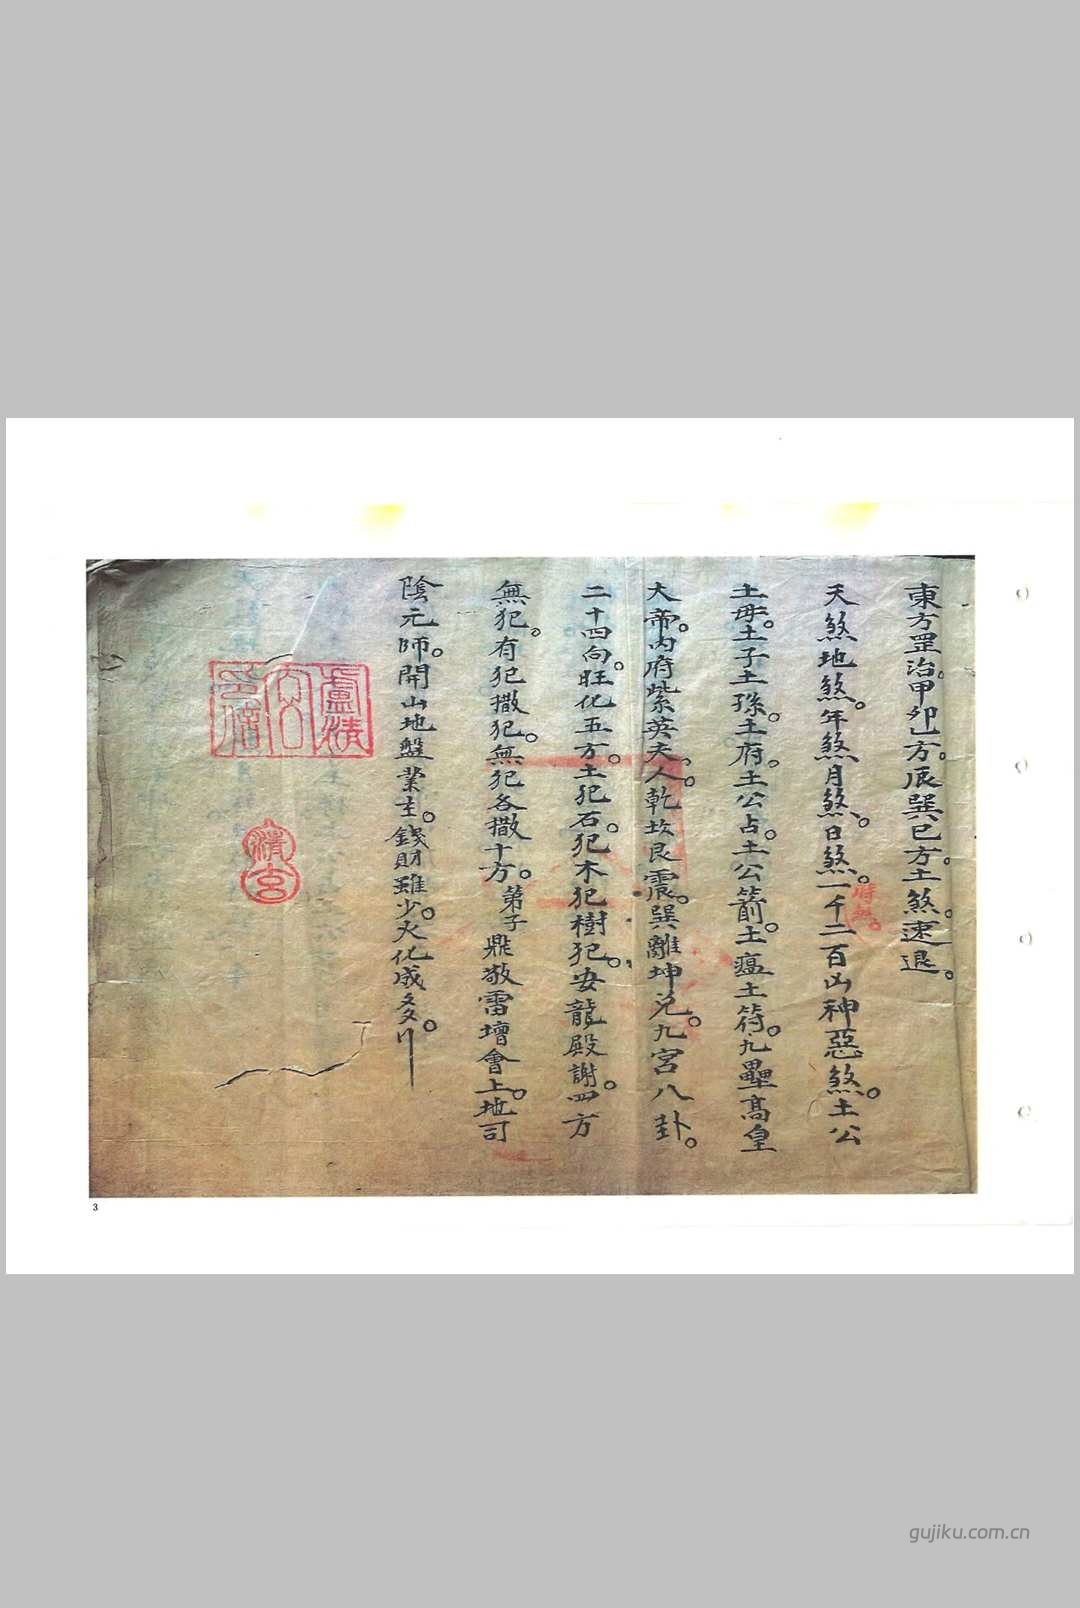 東方罡治。甲卯方。辰巽巳方。土煞。速退。
天煞地煞。年煞月煞。日煞。時煞。一千二百凶神惡煞。土公
土母。土子土孫。土府。土公占。土公箭。土瘟土符。九壘高皇
大帝。內府紫英夫人。乾坎艮震。巽離坤兌。九宮八卦。
二十四向。旺化五方。土犯石。犯木犯樹犯。安龍殿謝。四方
無犯。有犯撒犯。無犯各撒十方。第子鼎敬雷壇會上。地司
陰元師。開山地盤業主。錢財雖少。火化成多。
盧清
印信
清玄
3
gujiku.com.cn